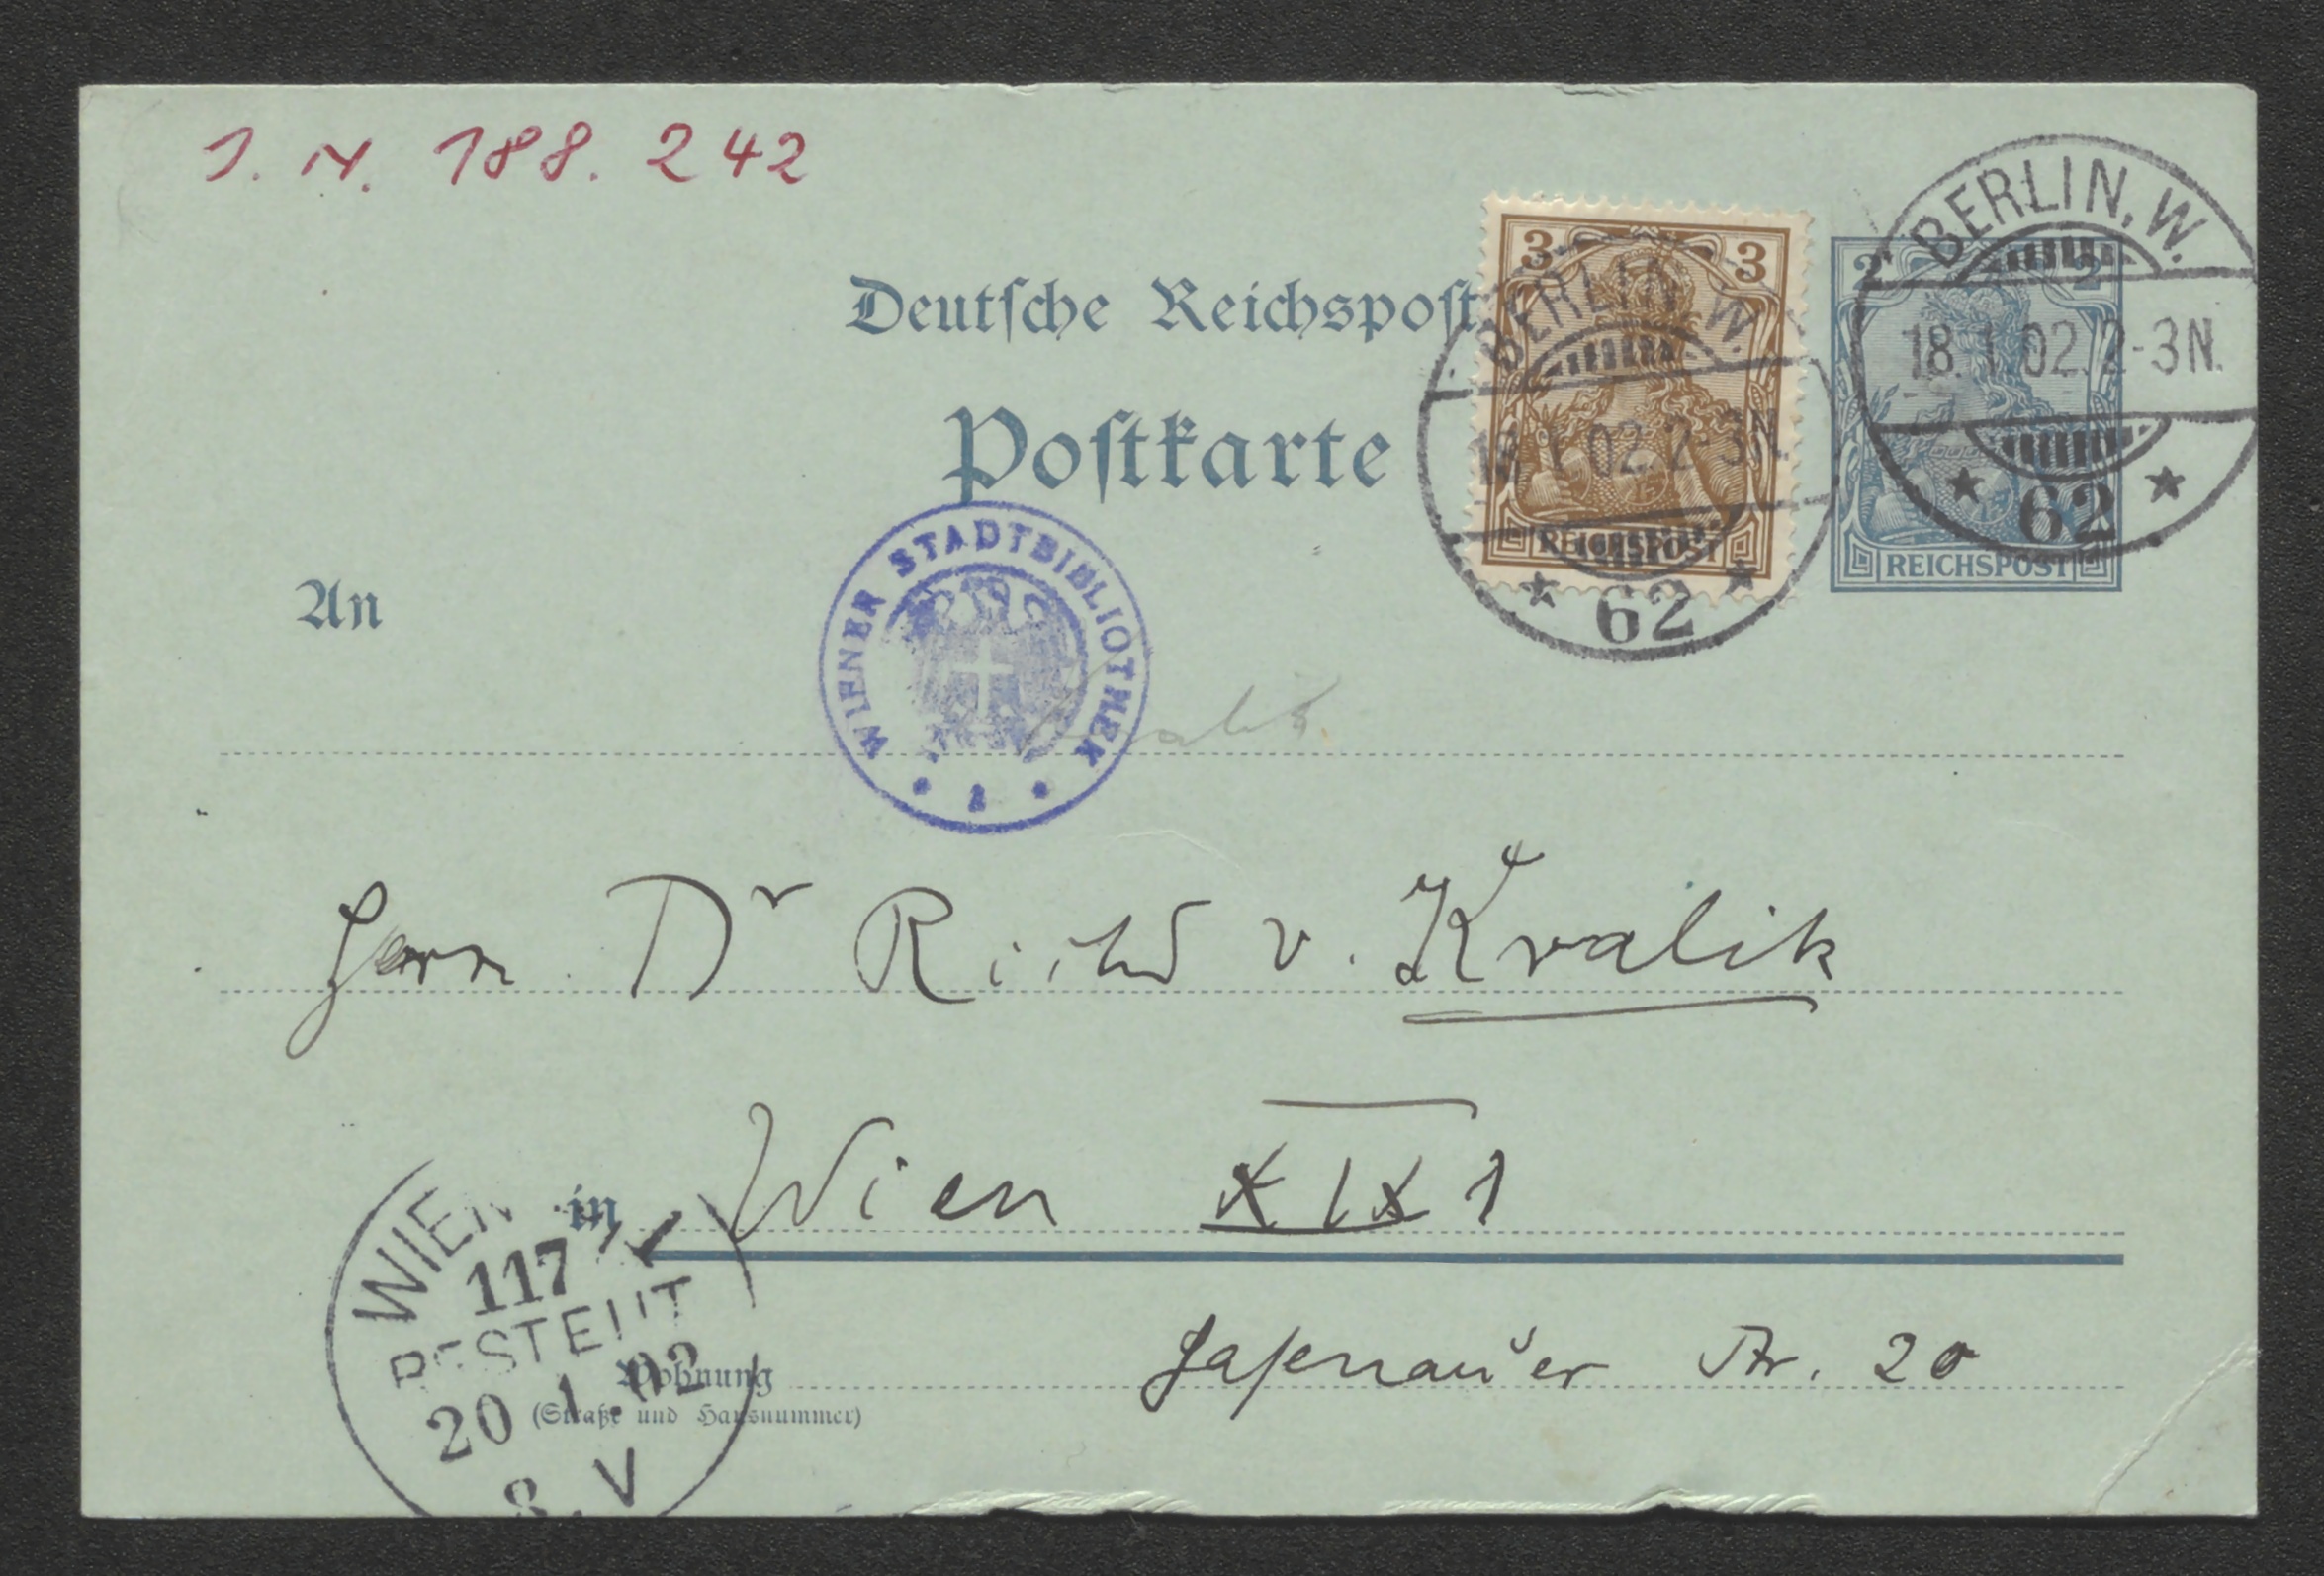 I. N. 188.242
Deutsche Reichspost
Postkarte
3 3
REICHSPOST
2 2
REICHSPOST
BERLIN, W.
18.1.02.2-3N.
* 62 *
BERLIN, W.
18.1.02.2-3N.
* 62 *
An
WIENER STADTBIBLIOTHEK
Kralik
Herrn Dr Richd v. Kralik
in Wien XIX 1
WIEN
117
BESTELLT
20.1.02
8.V
Wohnung
(Straße und Hausnummer)
Str. 20